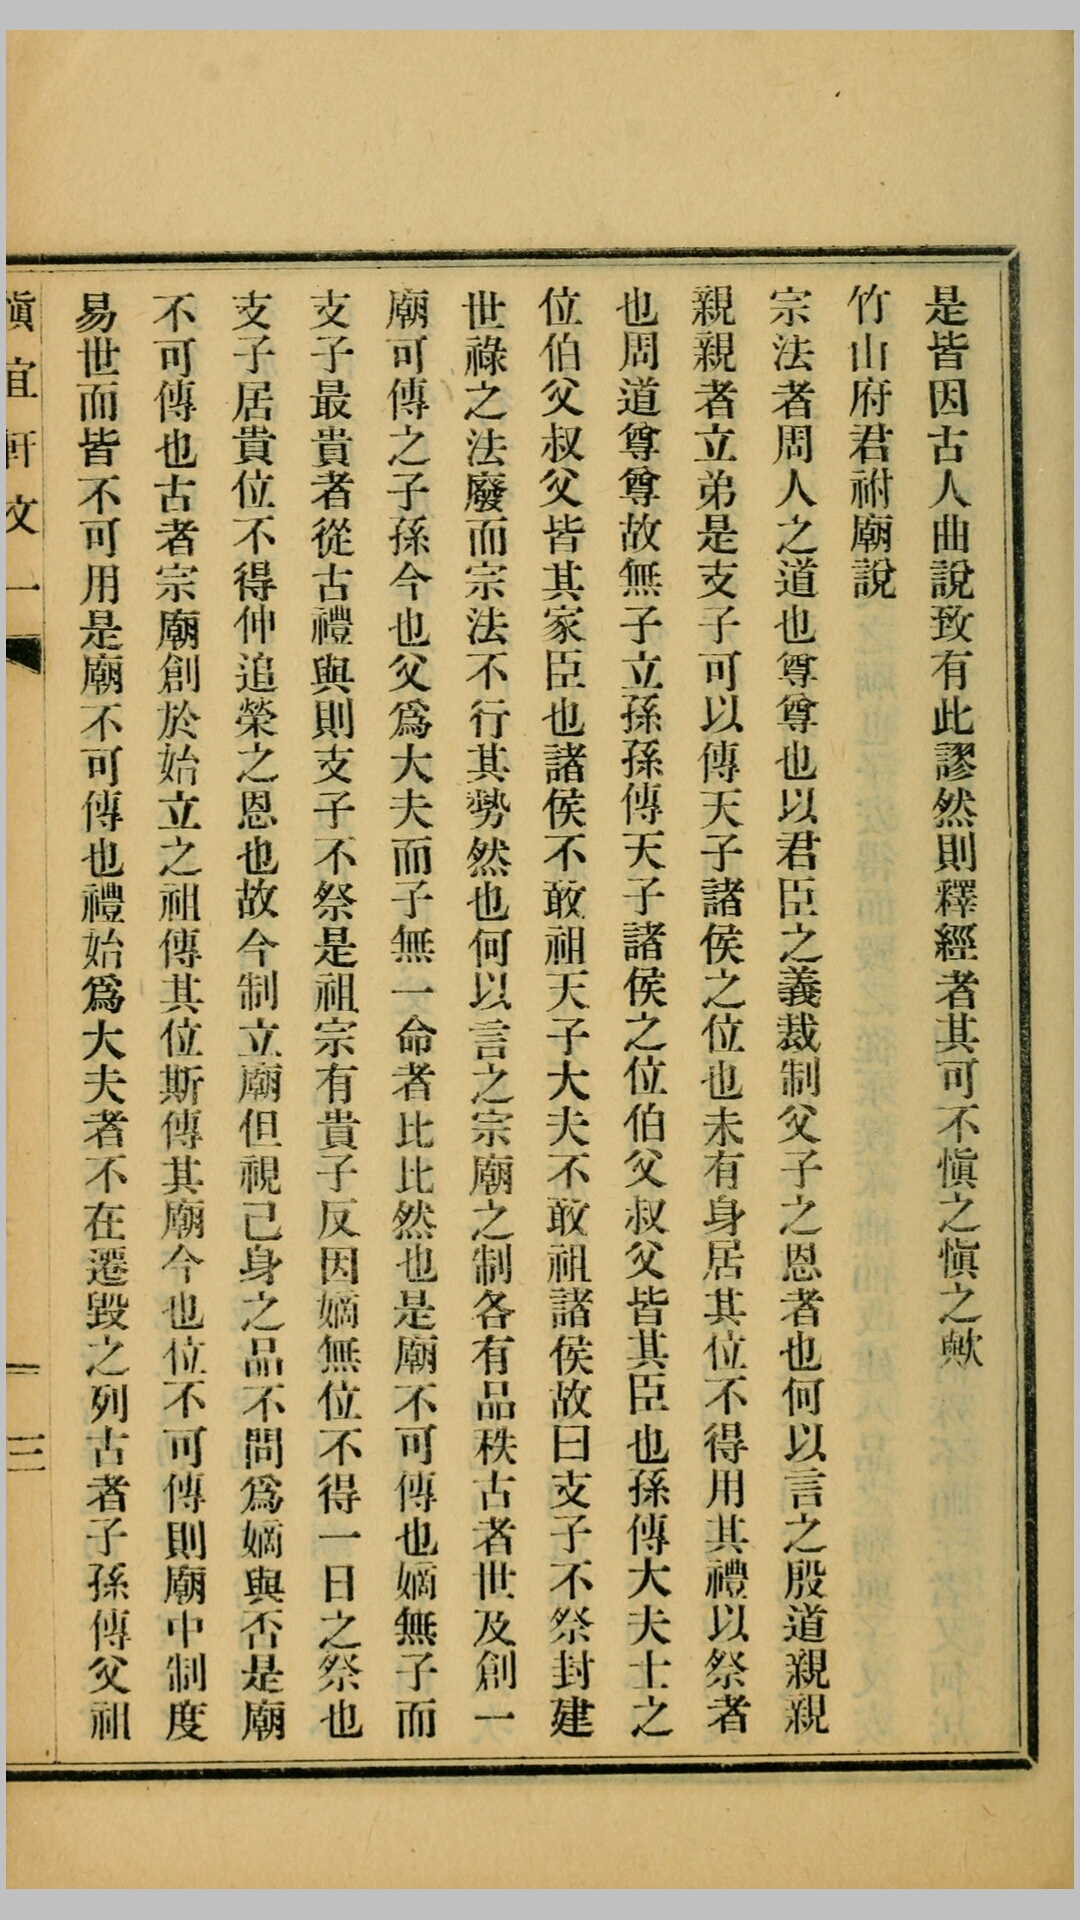 是皆因古人曲說致有此謬然則釋經者其可不愼之愼之歟
竹山府君祔廟說
宗法者周人之道也尊尊也以君臣之義裁制父子之恩者也何以言之殷道親親
親親者立弟是支子可以傳天子諸侯之位也未有身居其位不得用其禮以祭者
也周道尊尊故無子立孫孫傳天子諸侯之位伯父叔父皆其臣也孫傳大夫士之
位伯父叔父皆其家臣也諸侯不敢祖天子大夫不敢祖諸侯故曰支子不祭封建
世祿之法廢而宗法不行其勢然也何以言之宗廟之制各有品秩古者世及創一
廟可傳之子孫今也父爲大夫而子無一命者比比然也是廟不可傳也嫡無子而
支子最貴者從古禮與則支子不祭是祖宗有貴子反因嫡無位不得一日之祭也
支子居貴位不得伸追榮之恩也故今制立廟但視己身之品不問爲嫡與否是廟
不可傳也古者宗廟創於始立之祖傳其位斯傳其廟今也位不可傳則廟中制度
易世而皆不可用是廟不可傳也禮始爲大夫者不在遷毀之列古者子孫傳父祖
愼宜軒文一
三